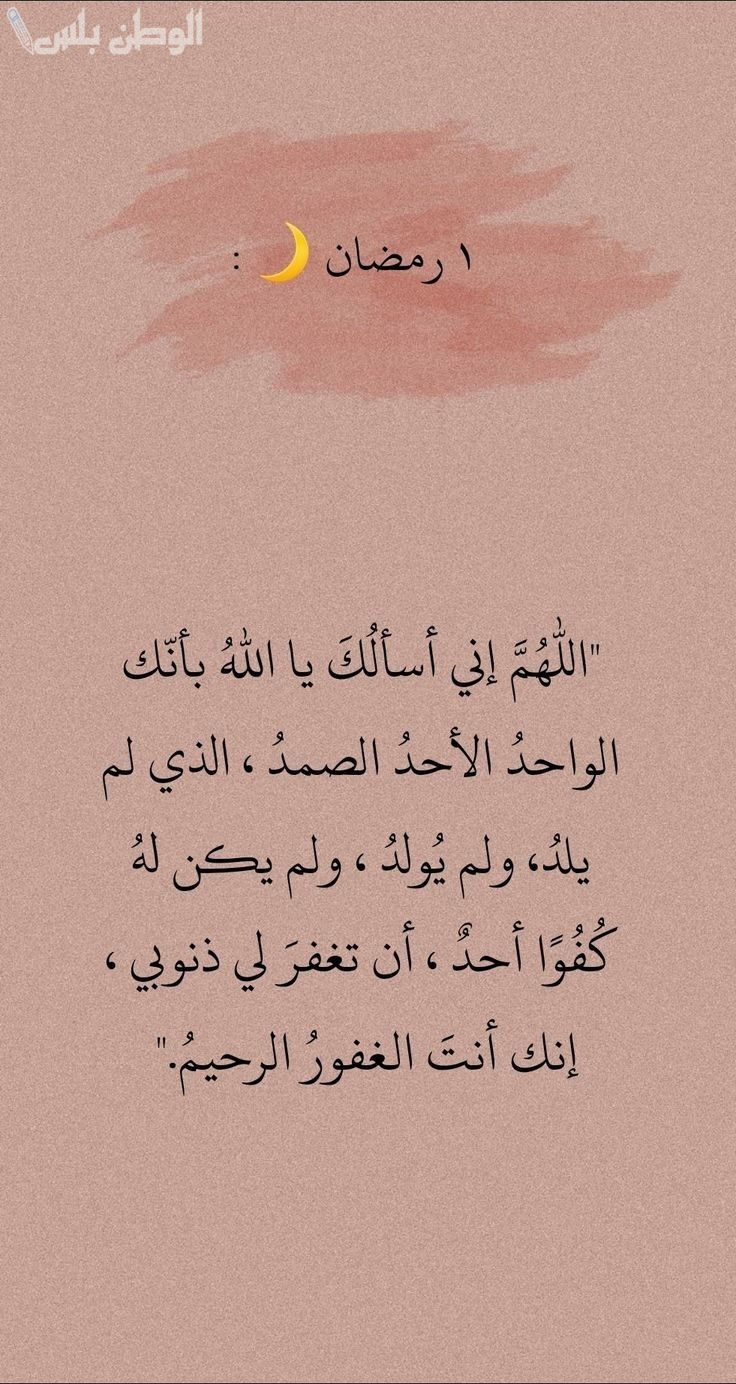 الوطن بلس
١ رمضان 🌙 :
"اللّٰهُمَّ إني أسألُكَ يا اللّٰهُ بأنّك
الواحدُ الأحدُ الصمدُ ، الذي لم
يلدُ، ولم يُولدُ ، ولم يكن لهُ
كُفُوًا أحدٌ ، أن تغفرَ لي ذنوبي ،
إنك أنتَ الغفورُ الرحيمُ."